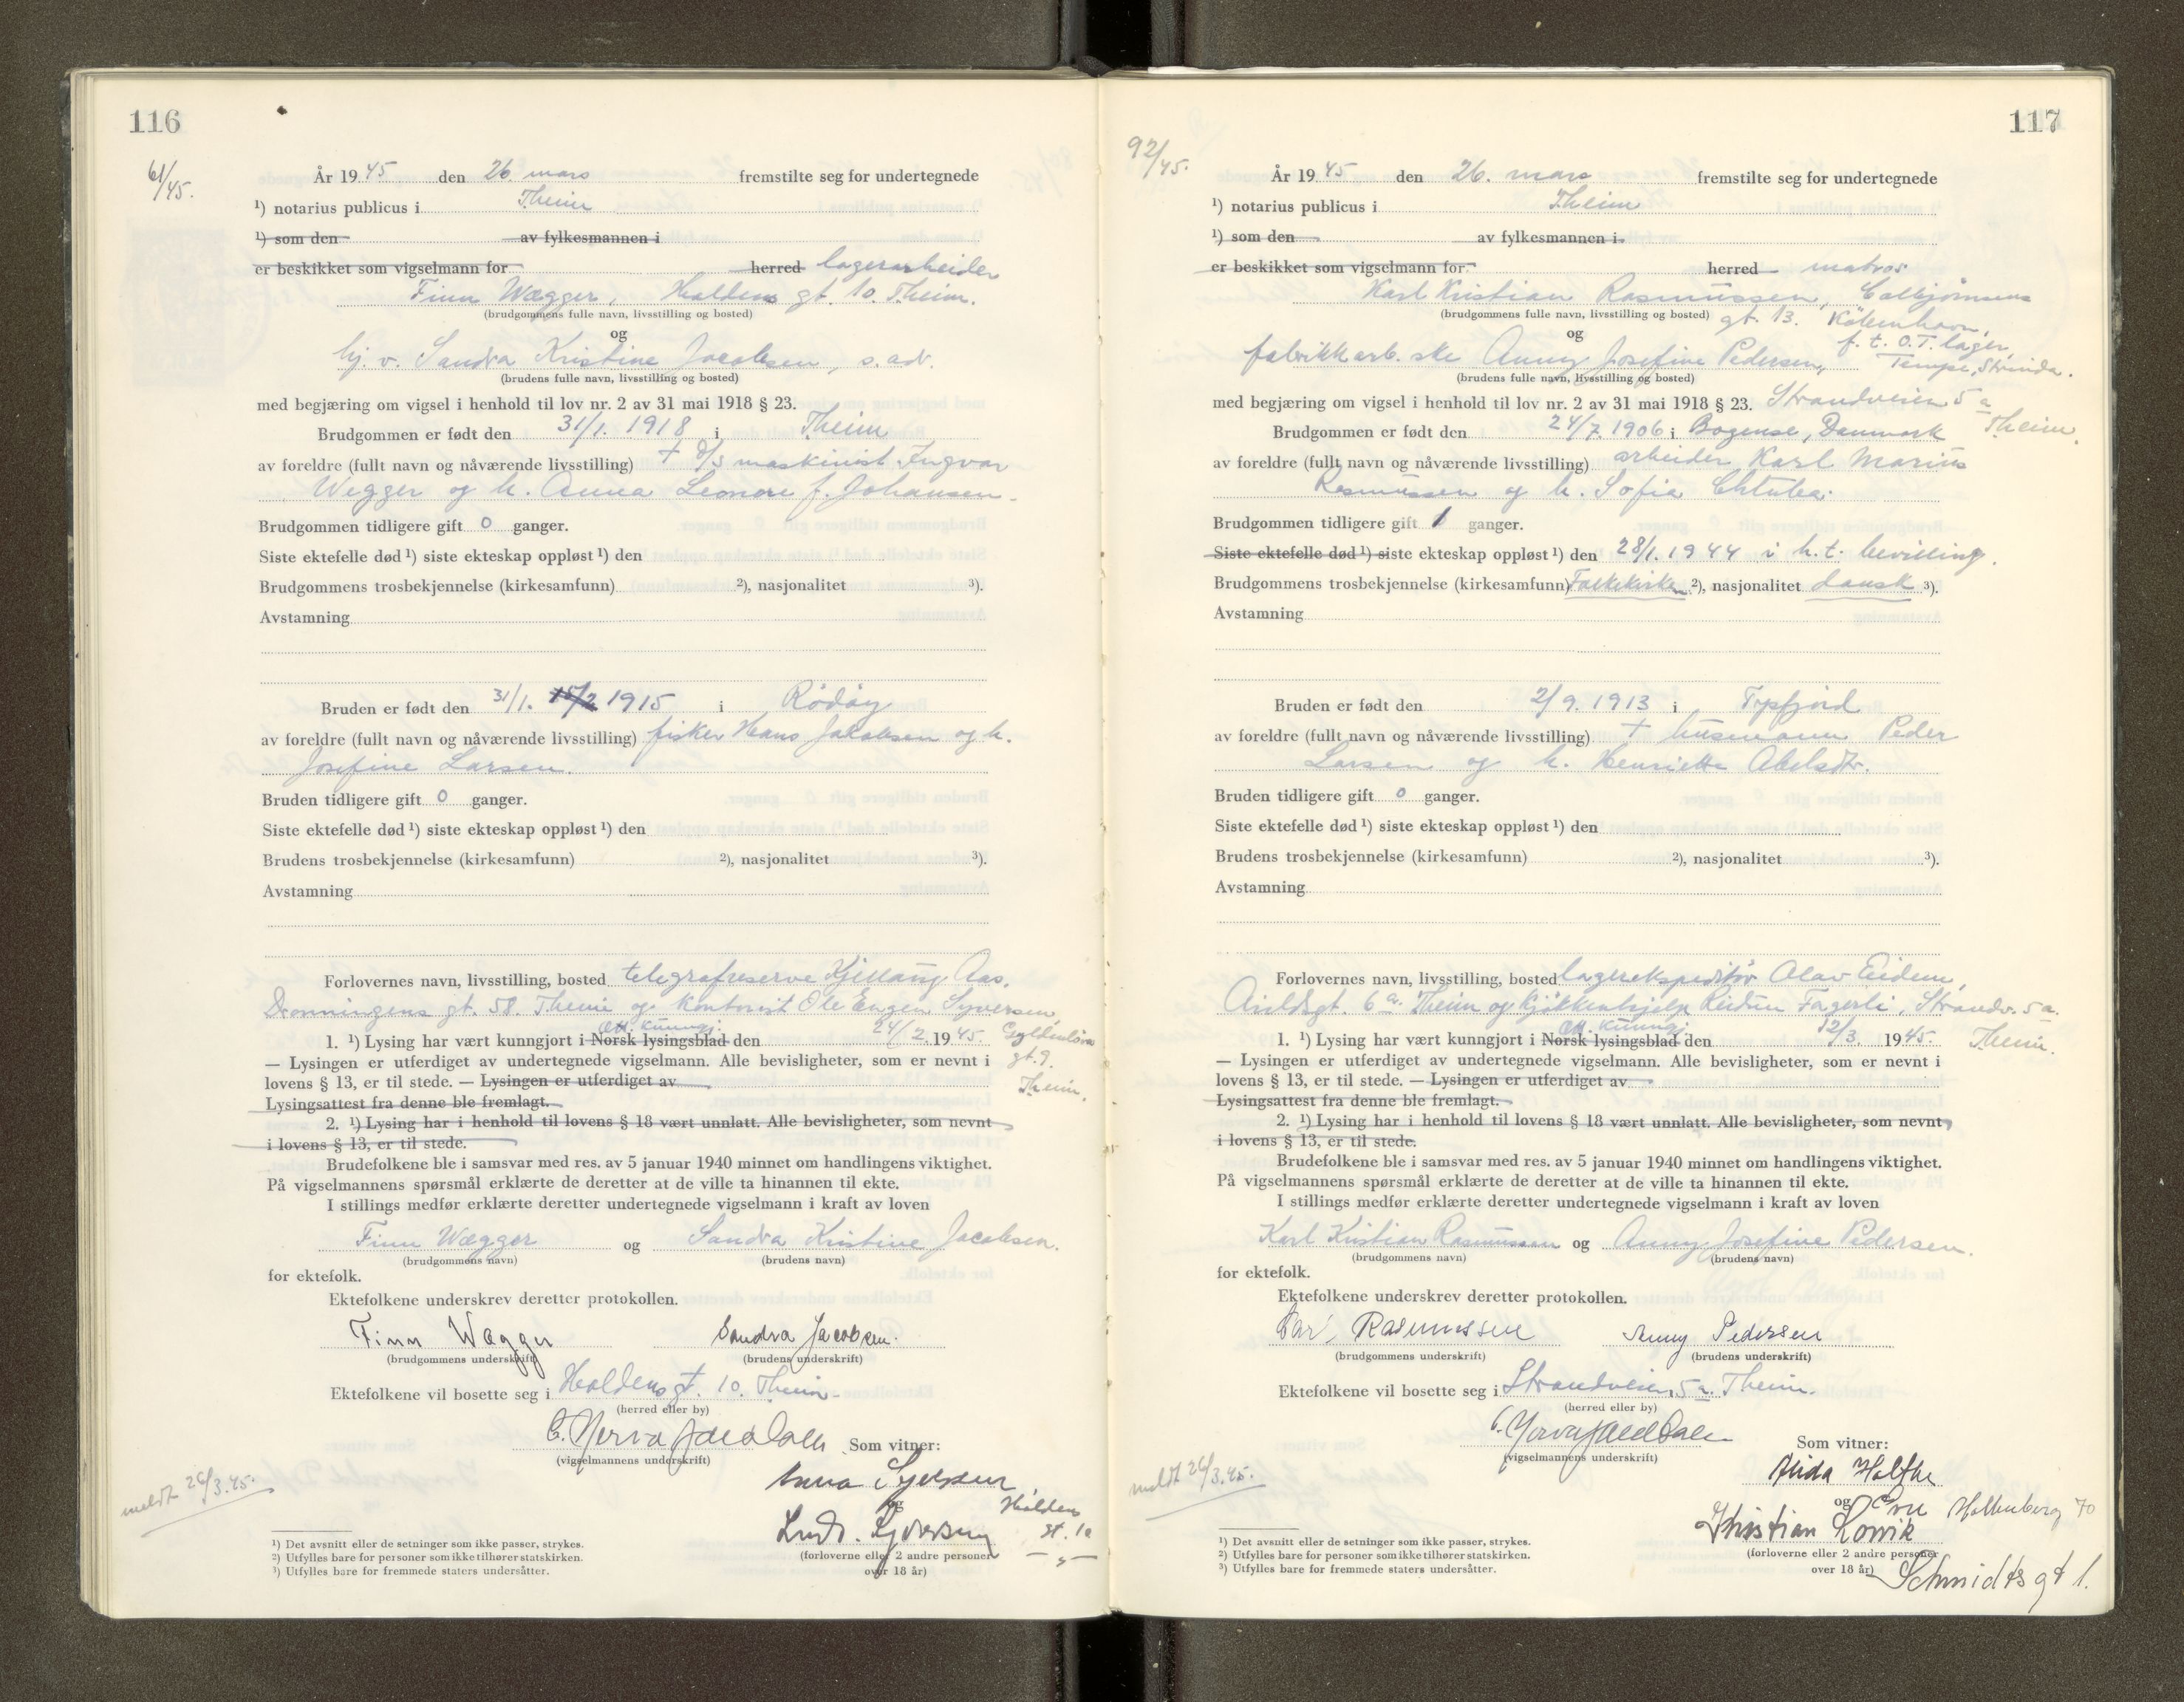 116
61/45.
År 1945 den 26. mars fremstilte seg for undertegnede
¹) notarius publicus i Theim
¹) som den av fylkesmannen i
er beskikket som vigselmann for herred lagerarbeider
Finn Wægger, Haldens gt. 10. Theim.
(brudgommens fulle navn, livsstilling og bosted)
og
hj. v. Sandra Kristine Jacobsen, s. adr.
(brudens fulle navn, livsstilling og bosted)
med begjæring om vigsel i henhold til lov nr. 2 av 31 mai 1918 § 23.
Brudgommen er født den 31/1. 1918 i Theim
av foreldre (fullt navn og nåværende livsstilling) + D/S maskinist Ingvar
Wegger og h. Anna Leonore f. Johansen.
Brudgommen tidligere gift 0 ganger.
Siste ektefelle død ¹) siste ekteskap oppløst ¹) den
Brudgommens trosbekjennelse (kirkesamfunn) ²), nasjonalitet ³).
Avstamning
Bruden er født den 31/1. 15/2 1915 i Rödöy
av foreldre (fullt navn og nåværende livsstilling) fisker Hans Jakobsen og h.
Josefine Larsen.
Bruden tidligere gift 0 ganger.
Siste ektefelle død ¹) siste ekteskap oppløst ¹) den
Brudens trosbekjennelse (kirkesamfunn) ²), nasjonalitet ³).
Avstamning
Forlovernes navn, livsstilling, bosted telegrafreserve Kjellaug Aas.
Dronningens gt. 58. Theim og kontorist Ole Engen Syversen,
Gyldenløves
gt. 9.
Theim.
ott. kunngj.
1. ¹) Lysing har vært kunngjort i Norsk lysingsblad den 24/2. 1945.
— Lysingen er utferdiget av undertegnede vigselmann. Alle bevisligheter, som er nevnt i
lovens § 13, er til stede. — Lysingen er utferdiget av
Lysingsattest fra denne ble fremlagt.
2. ¹) Lysing har i henhold til lovens § 18 vært unnlatt. Alle bevisligheter, som nevnt
i lovens § 13, er til stede.
Brudefolkene ble i samsvar med res. av 5 januar 1940 minnet om handlingens viktighet.
På vigselmannens spørsmål erklærte de deretter at de ville ta hinannen til ekte.
I stillings medfør erklærte deretter undertegnede vigselmann i kraft av loven
Finn Wægger og Sandra Kristine Jacobsen.
(brudgommens navn) (brudens navn)
for ektefolk.
Ektefolkene underskrev deretter protokollen.
Finn Wægger Sandra Jacobsen.
(brudgommens underskrift) (brudens underskrift)
Ektefolkene vil bosette seg i Haldensgt. 10. Theim.
(herred eller by)
Som vitner:
(vigselmannens underskrift)
meldt 26/3.45.
og
Haldens
gt. 10
(forloverne eller 2 andre personer
over 18 år)
¹) Det avsnitt eller de setninger som ikke passer, strykes.
²) Utfylles bare for personer som ikke tilhører statskirken.
³) Utfylles bare for fremmede staters undersåtter.
117
92/45.
År 1945 den 26. mars fremstilte seg for undertegnede
¹) notarius publicus i Theim
¹) som den av fylkesmannen i
er beskikket som vigselmann for herred matros
Karl Kristian Rasmussen, Colbjörnsens
(brudgommens fulle navn, livsstilling og bosted) gt. 13. Köbenhavn,
og
f. t. O.T. lager,
Tempe, Strinda.
fabrikkarb. ske Anny Josefine Pedersen,
(brudens fulle navn, livsstilling og bosted)
med begjæring om vigsel i henhold til lov nr. 2 av 31 mai 1918 § 23. Strandveien 5 a
Theim.
Brudgommen er født den 24/7. 1906 i Bogense, Danmark
av foreldre (fullt navn og nåværende livsstilling) arbeider Karl Marius
Rasmussen og h. Sofia
Brudgommen tidligere gift 1 ganger.
Siste ektefelle død ¹) siste ekteskap oppløst ¹) den 28/1. 1944 i h. t. bevilling.
Brudgommens trosbekjennelse (kirkesamfunn) Folkekirken ²), nasjonalitet dansk ³).
Avstamning
Bruden er født den 2/9. 1913 i Tysfjord
av foreldre (fullt navn og nåværende livsstilling) + husmann Peder
Larsen og h. Henriette Abelsdtr.
Bruden tidligere gift 0 ganger.
Siste ektefelle død ¹) siste ekteskap oppløst ¹) den
Brudens trosbekjennelse (kirkesamfunn) ²), nasjonalitet ³).
Avstamning
Forlovernes navn, livsstilling, bosted lagerekspeditör Olav Eidem,
Arildsgt. 6 a. Theim og kjökkenhjelp Reidun Fagerli, Strandv. 5 a.
Theim.
ott. kunngj.
1. ¹) Lysing har vært kunngjort i Norsk lysingsblad den 12/3. 1945.
— Lysingen er utferdiget av undertegnede vigselmann. Alle bevisligheter, som er nevnt i
lovens § 13, er til stede. — Lysingen er utferdiget av
Lysingsattest fra denne ble fremlagt.
2. ¹) Lysing har i henhold til lovens § 18 vært unnlatt. Alle bevisligheter, som nevnt
i lovens § 13, er til stede.
Brudefolkene ble i samsvar med res. av 5 januar 1940 minnet om handlingens viktighet.
På vigselmannens spørsmål erklærte de deretter at de ville ta hinannen til ekte.
I stillings medfør erklærte deretter undertegnede vigselmann i kraft av loven
Karl Kristian Rasmussen og Anny Josefine Pedersen.
(brudgommens navn) (brudens navn)
for ektefolk.
Ektefolkene underskrev deretter protokollen.
Karl Rasmussen Anny Pedersen
(brudgommens underskrift) (brudens underskrift)
Ektefolkene vil bosette seg i Strandveien 5 a. Theim.
(herred eller by)
Som vitner:
(vigselmannens underskrift)
meldt 26/3.45.
Alida
og
Kristian
(forloverne eller 2 andre personer
over 18 år) Schmidts gt 1.
¹) Det avsnitt eller de setninger som ikke passer, strykes.
²) Utfylles bare for personer som ikke tilhører statskirken.
³) Utfylles bare for fremmede staters undersåtter.